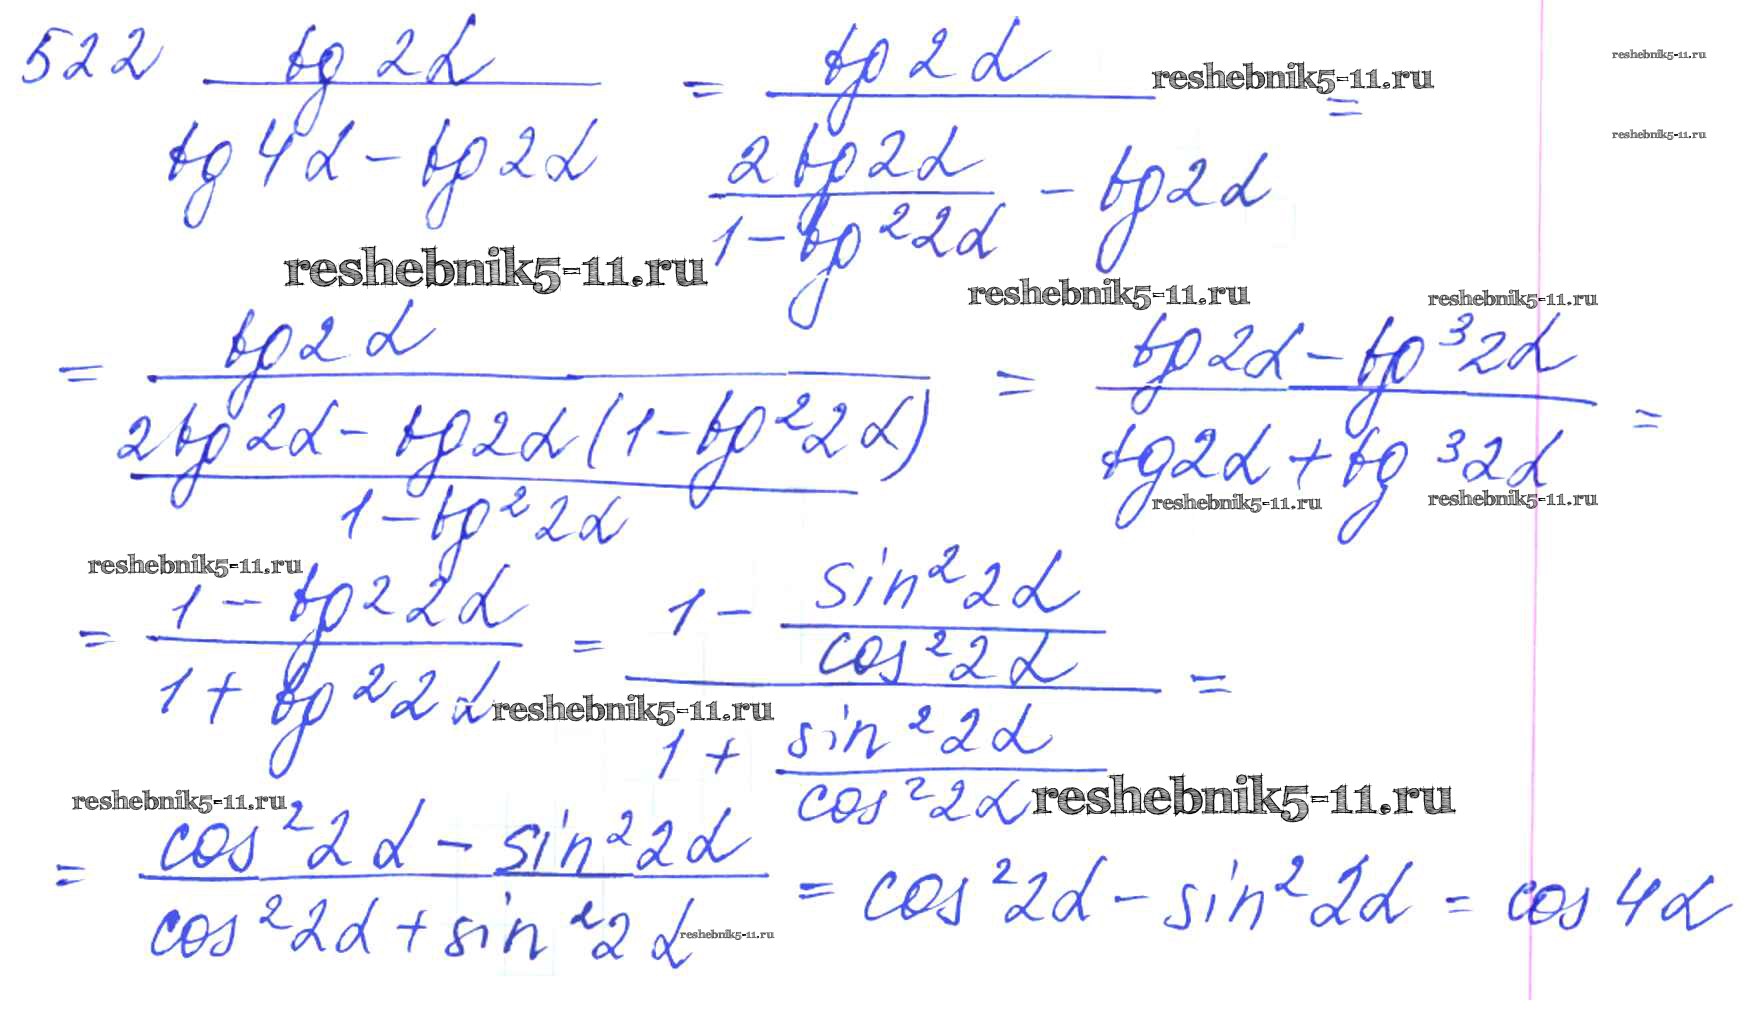 522 tg 2α / (tg 4α - tg 2α) = tg 2α / (2 tg 2α / (1 - tg² 2α) - tg 2α) =
reshebnik5-11.ru
reshebnik5-11.ru
reshebnik5-11.ru
reshebnik5-11.ru
reshebnik5-11.ru
reshebnik5-11.ru
= tg 2α / ((2 tg 2α - tg 2α (1 - tg² 2α)) / (1 - tg² 2α)) = (tg 2α - tg³ 2α) / (tg 2α + tg³ 2α) =
reshebnik5-11.ru
reshebnik5-11.ru
reshebnik5-11.ru
= (1 - tg² 2α) / (1 + tg² 2α) = (1 - sin² 2α / cos² 2α) / (1 + sin² 2α / cos² 2α) =
reshebnik5-11.ru
reshebnik5-11.ru
reshebnik5-11.ru
= (cos² 2α - sin² 2α) / (cos² 2α + sin² 2α) = cos² 2α - sin² 2α = cos 4α
reshebnik5-11.ru